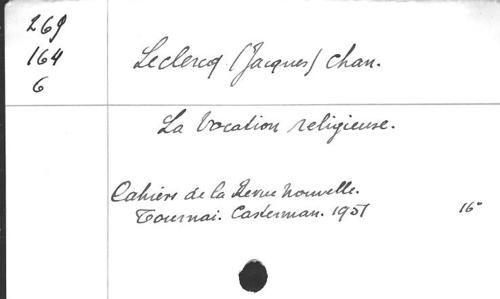 269
164
6
Leclercq (Jacques) chan.
La Vocation religieuse.
Cahiers de la Revue Nouvelle.
Tournai. Casterman. 1951
16°